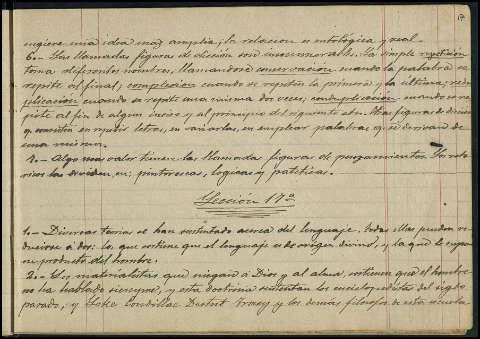 sugiere una idea mas amplia; la relacion es ontológica y real.
6.- Las llamadas figuras de diccion son innumerables. La simple repeticion
toma diferentes nombres, llamandose conversacion cuando la palabra se
repite al final, complexion cuando se repiten la primera y la última; redu
plicacion cuando se repite una misma dos veces; conduplicacion cuando se re
pite al fin de algun inciso y al principio del siguiente etc. Otras figuras de diccion
consisten en repetir letras, en variarlas, en emplear palabras q. se derivan de
una misma.
7.- Algo mas valor tienen las llamadas figuras de pensamientos. Los reto
ricos las dividen en: pintorescas, logicas y patéticas.
Leccion 17ª
1.- Diversas teorias se han sustentado acerca del lenguaje. Todas ellas pueden re
ducirse a dos: la que sostiene que el lenguaje es de origen divino, y la que le supo
ne producto del hombre.
2.- Los materialistas que niegan a Dios y al alma, sostienen que el hombre
no ha hablado siempre, y esta doctrina sustentan los enciclopedistas del siglo
pasado, y Locke Condillac Destutt Tracy y los demás filosofos de esta escuela